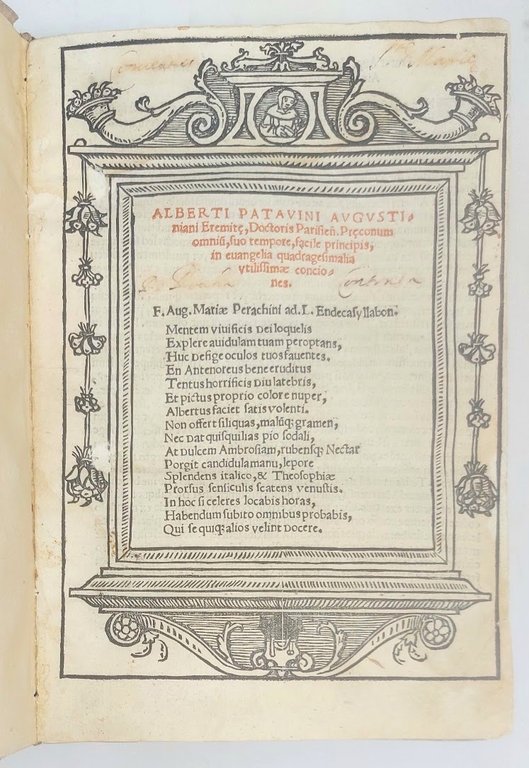 ALBERTI PATAVINI AVGVSTI-
niani Eremitę, Doctoris Parisieñ. Pręconum
omniũ, suo tempore, facile principis,
in euangelia quadragesimalia
vtilissimæ concio-
nes.
F. Aug. Mariæ Perachini ad. L. Endecasyllabon.
Mentem viuificis Deiloquelis
Explere auidulam tuam peroptans,
Huc defige oculos tuos fauentes.
En Antenoreus bene eruditus
Tentus horrificis Diu latebris,
Et pictus proprio colore nuper,
Albertus faciet satis volenti.
Non offert siliquas, malũq; gramen,
Nec Dat quisquilias pio sodali,
At Dulcem Ambrosiam, rubensq; Nectar
Porgit candidula manu, lepore
Splendens italico, & Theosophiæ
Prorsus sensiculis scatens venustis.
In hoc si celeres locabis horas,
Habendum subito omnibus probabis,
Qui se quiq; alios velint Docere.